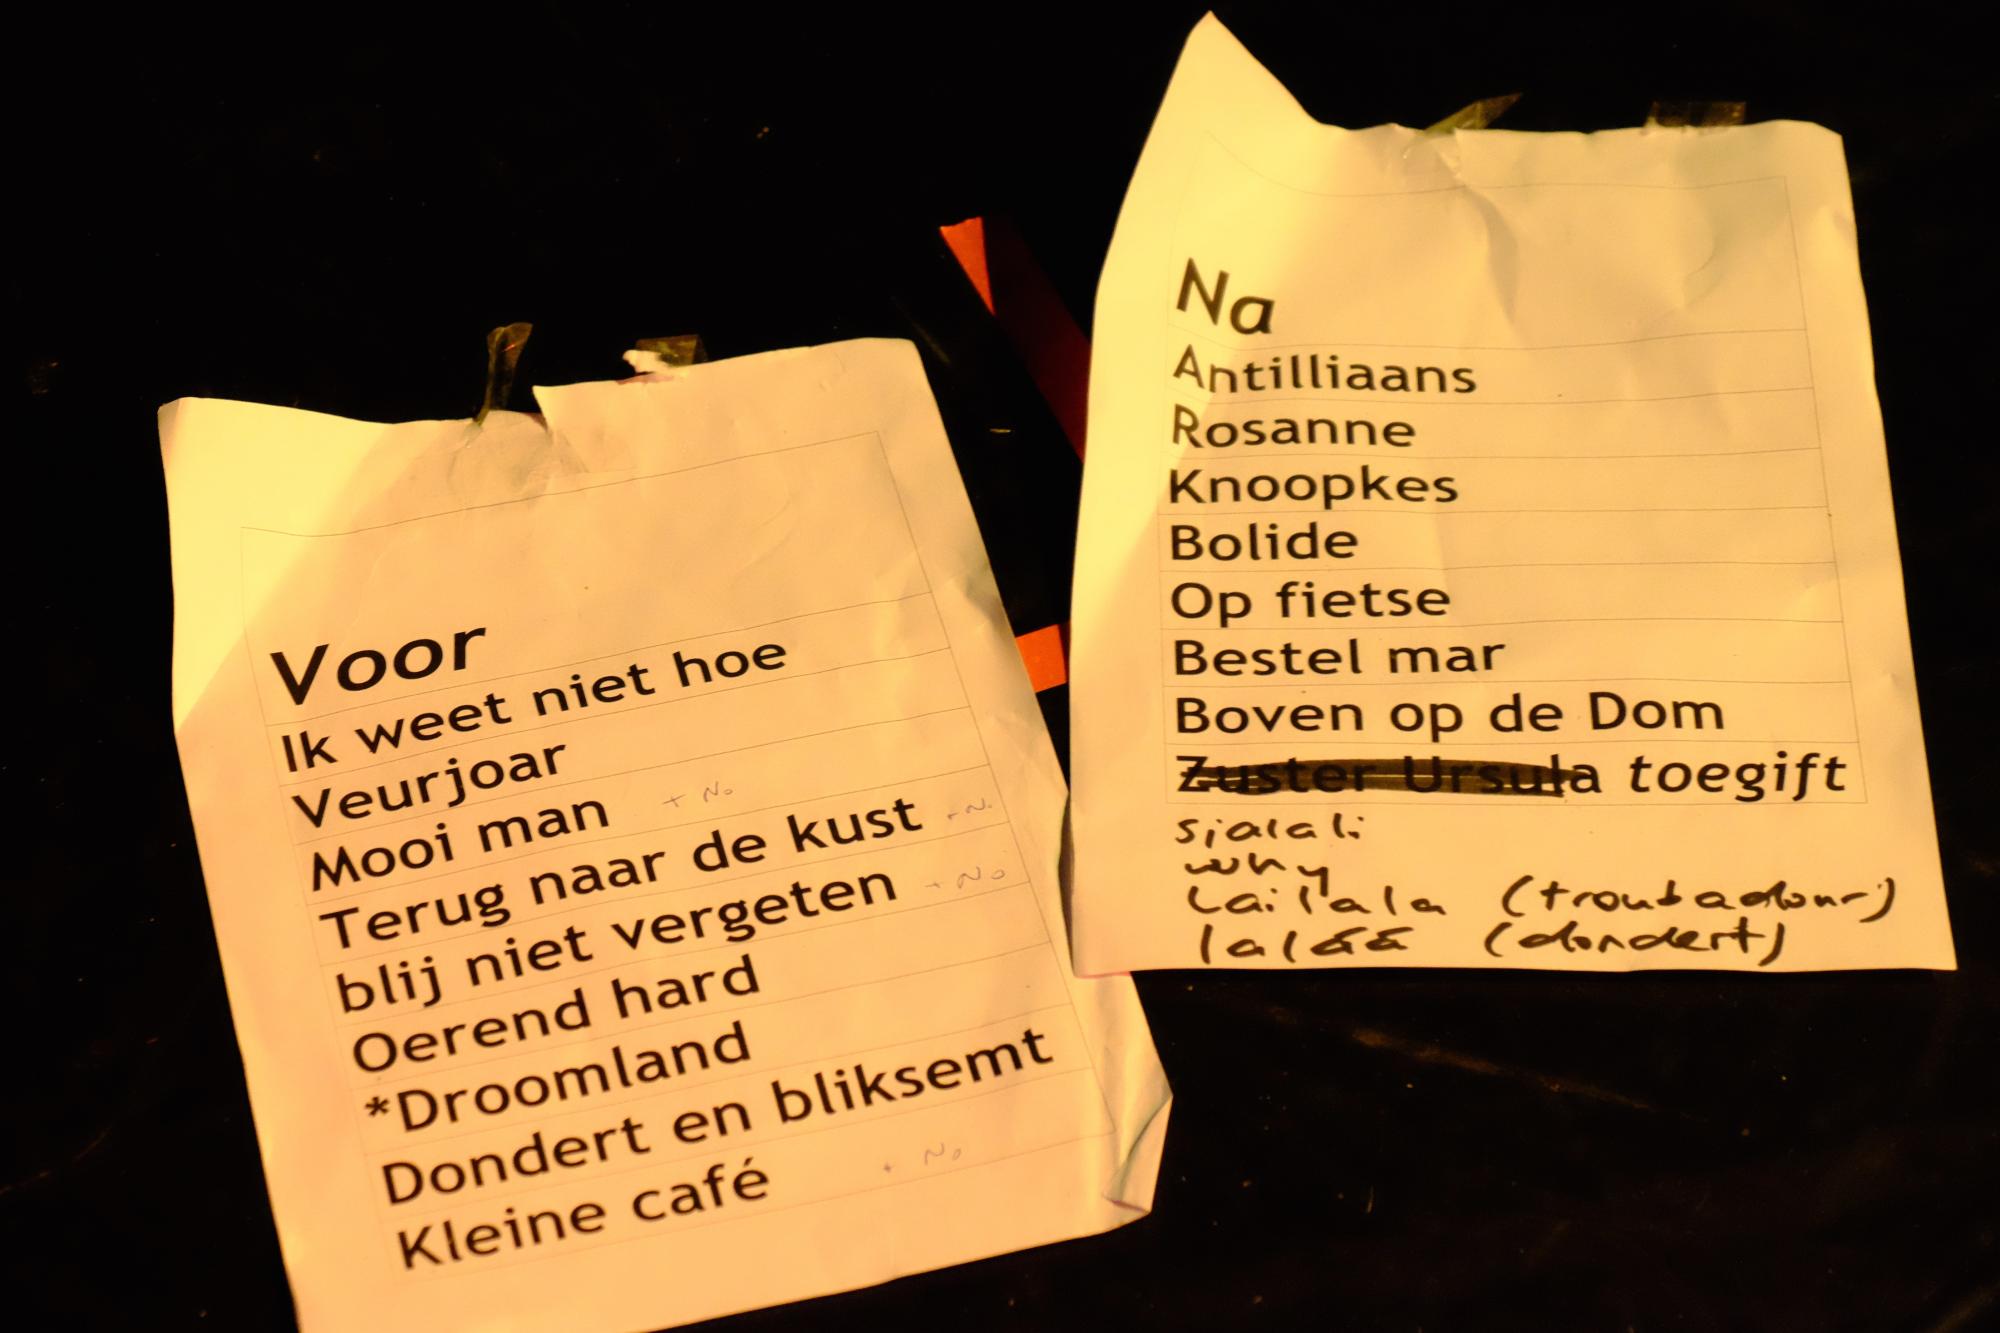 Voor
Ik weet niet hoe
Veurjoar
Mooi man + No
Terug naar de kust + N.
blij niet vergeten + No
Oerend hard
*Droomland
Dondert en bliksemt
Kleine café + No
Na
Antilliaans
Rosanne
Knoopkes
Bolide
Op fietse
Bestel mar
Boven op de Dom
Zuster Ursula toegift
sjalali
why
Lailala (troubadour)
lalaa (dondert)